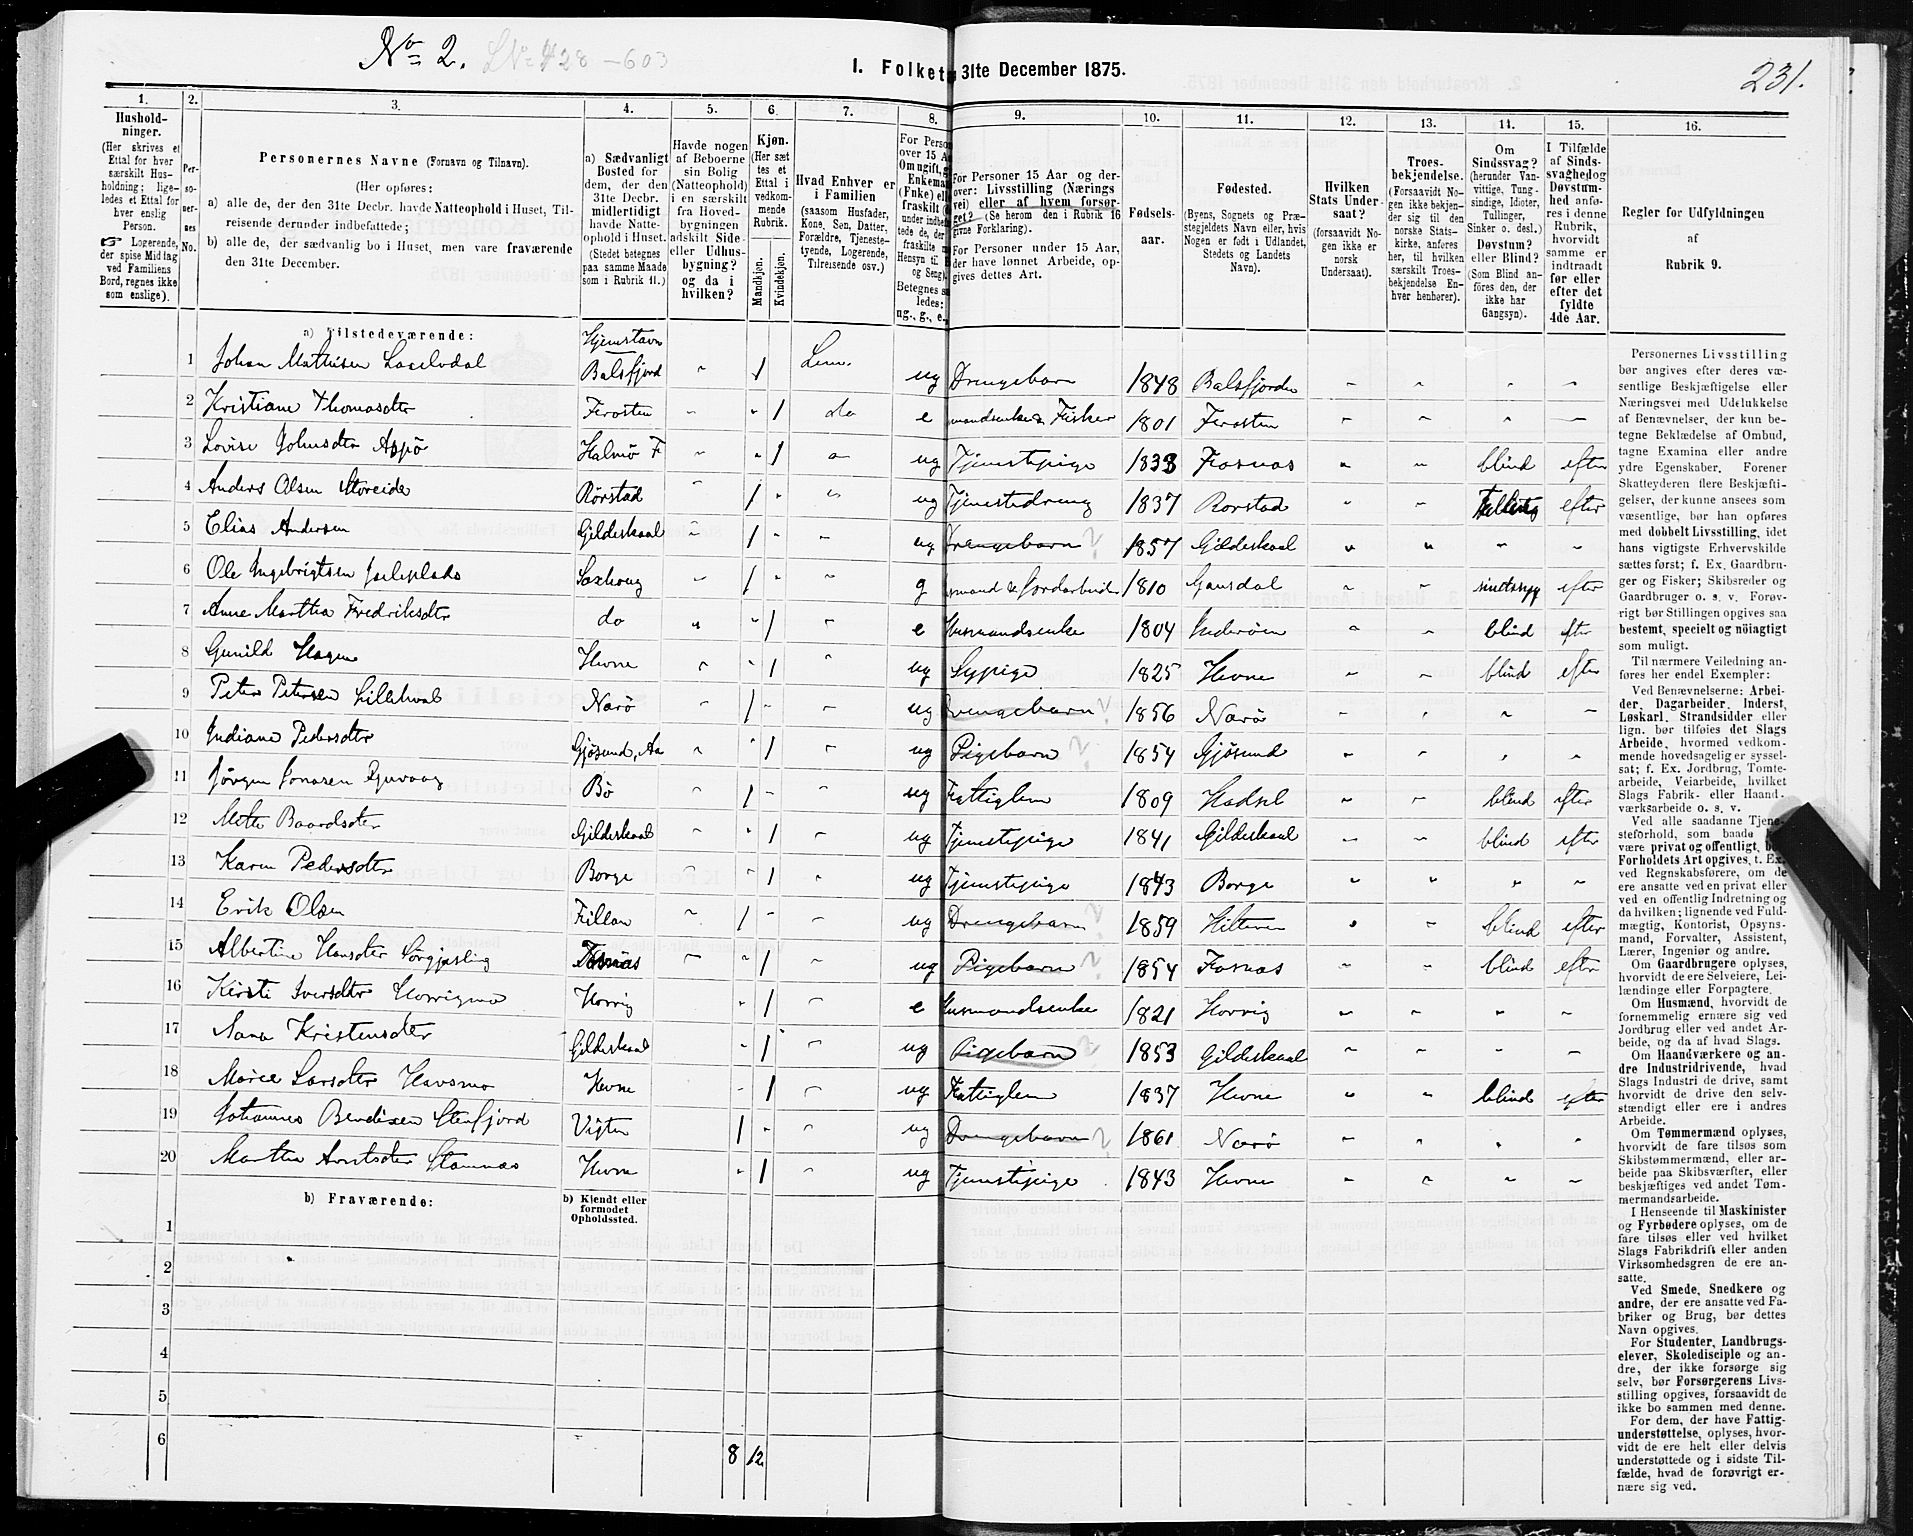 No 2. LNr 428 – 603
I. Folket 31te December 1875.
231.
1.
2.
3.
4.
5.
6.
7.
8.
9.
10.
11.
12.
13.
14.
15.
16.
Hushold-
ninger.
(Her skrives et
Ettal for hver
særskilt Hus-
holdning; lige-
ledes et Ettal for
hver enslig
Person.
☞ Logerende,
der spise Middag
ved Familiens
Bord, regnes ikke
som enslige).
Per-
so-
ner-
nes
No.
Personernes Navne (Fornavn og Tilnavn).
(Her opføres:
a) alle de, der den 31te Decbr. havde Natteophold i Huset, Til-
reisende derunder indbefattede;
b) alle de, der sædvanlig bo i Huset, men vare fraværende
den 31te December.
a) Sædvanligt
Bosted for
dem, der den
31te Decbr.
midlertidigt
havde Natte-
ophold i Huset.
(Stedet betegnes
paa samme Maade
som i Rubrik 11.)
Havde nogen
af Beboerne
sin Bolig
(Natteophold)
i en særskilt
fra Hoved-
bygningen
adskilt Side-
eller Udhus-
bygning?
og da i
hvilken?
Kjøn.
(Her sæt-
tes et
Ettal i
vedkom-
mende
Rubrik.
Mandkjøn.
Kvindekjøn.
Hvad Enhver er
i Familien
(saasom Husfader,
Kone, Søn, Datter,
Forældre, Tjeneste-
tyende, Logerende,
Tilreisende osv.)
For Perso
over 15 Aa
Om ugift, g
Enkema
(Fnke) elle
under indbe
tede de, der
fraskilte m
Hensyn til B
og Seng).
Betegnes s
ledes:
ug., g., e.,
For Personer 15 Aar og der-
over: Livsstilling (Nærings
vei) eller af hvem forsør-
get? (Se herom den i Rubrik 16
givne Forklaring).
For Personer under 15 Aar,
der have lønnet Arbeide, op-
gives dettes Art.
Fødsels-
aar.
Fødested.
(Byens, Sognets og Præ-
stegjeldets Navn eller, hvis
Nogen er født i Udlandet,
Stedets og Landets
Navn).
Hvilken
Stats Under-
saat?
(forsaavidt No-
gen ikke er
norsk
Undersaat).
Troes-
bekjendelse.
(Forsaavidt No-
gen ikke bekjen-
der sig til den
norske Stats-
kirke, anføres
her, til hvilken
særskilt Troes-
bekjendelse En-
hver henhører).
Om
Sindssvag?
(herunder Van-
vittige, Tung-
sindige, Idioter,
Tullinger,
Sinker o. desl.)
Døvstum?
eller Blind?
(Som Blind an-
føres den, der
ikke har
Gangsyn).
I Tilfælde
af Sinds-
svaghed og
Døvstum-
hed anfø-
res i denne
Rubrik,
hvorvidt
samme er
indtraadt
før eller
efter det
fyldte
4de Aar.
Regler for Udfyldningen
af
Rubrik 9.
a) Tilstedeværende:
Hjemstavn
1 Johan Mathisen Balsfjord " 1 Lem. ug Drengebarn 1848 Balsfjorden " " " "
2 Kristiane Thomasdtr " " 1 do e Fisker 1801 " " " "
3 Lovise Johnsdtr " " 1 " ug Tjenestepige 1833 Fosnæs " " blind efter
4 Anders Olsen Storeide Rørstad " 1 " " ug Tjenestedreng 1837 Rorstad " " efter
5 Elias Andersen Gildeskaal " 1 " " ug Drengebarn? 1857 Gildeskaal " " " "
6 Ole Ingebrigtsen " 1 " " g 1810 " " efter
7 Anne Martha Fredriksdtr do " " 1 " e Husmandsenke 1804 Inderøen " " blind efter
8 Gunild Hagen Hevne " " 1 " ug Sypige 1825 Hevne " " blind efter
9 Peter Petersen Nærø " 1 " " ug Drengebarn? 1856 Nærø " " " "
10 Indiane Pedersdtr Gjøsund, Aa " " 1 " ug Pigebarn? 1854 Gjøsund " " " "
11 Jørgen Jonasen Bø " 1 " " ug Fattiglem 1809 Hadsel " " blind efter
12 Mette Baardsdtr Gildeskaal " " 1 " ug Tjenestepige 1841 Gildeskaal " " blind efter
13 Karen Pedersdtr Borge " " 1 " ug Tjenestepige 1843 Borge " " " "
14 Erik Olsen Fillan " 1 " " ug Drengebarn? 1859 Hitteren " " blind efter
15 Albertine Hansdtr Fosnæs " " 1 " ug Pigebarn? 1854 Fosnæs " " blind efter
16 Kirsti Iversdtr Horrig " 1 " e Husmandsenke 1821 Horrig " " " "
17 Kristensdtr Gildeskaal " 1 " ug Pigebarn? 1853 Gildeskaal " " " "
18 Larsdtr Hevne " 1 " ug Fattiglem 1837 Hevne " " blind efter
19 Johannes Bendixen Stenfjord Vigten 1 " " ug Drengebarn? 1861 Nærø " " " "
20 Martha Arntsdtr Stamnæs Hevne " 1 " ug Tjenestepige 1843 Hevne " " " "
b) Fraværende:
b) Kjendt eller
formodet
Opholdssted.
1
2
3
4
5
6
8 12
Personernes Livsstilling
bør angives efter deres væ-
sentlige Beskjæftigelse eller
Næringsvei med Udelukkelse
af Benævnelser, der kun be-
tegne Beklædelse af Ombud,
tagne Examina eller andre
ydre Egenskaber. Forener
Skatteyderen flere Beskjæfti-
gelser, der kunne ansees som
væsentlige, bør han opføres
med dobbelt Livsstilling, idet
hans vigtigste Erhvervskilde
sættes først; f. Ex. Gaardbru-
ger og Fisker; Skibsreder og
Gaardbruger o. s. v. Forøv-
rigt bør Stillingen opgives saa
bestemt, specielt og nøiagtigt
som muligt.
Til nærmere Veiledning an-
føres her endel Exempler:
Ved Benævnelserne: Arbei-
der, Dagarbeider, Inderst,
Løskarl, Strandsidder eller
lign. bør tilføies det Slags
Arbeide, hvormed vedkom-
mende hovedsagelig er syssel-
sat; f. Ex. Jordbrug, Tomte-
arbeide, Veiarbeide, hvilket
Slags Fabrik- eller Haand-
værksarbeide o. s. v.
Ved alle saadanne Tjene-
steforhold, som baade k
være privat og offentlig, b
Forholdets Art opgives, t. Ex.
ved Regnskabsførere, om de
ere ansatte ved en privat eller
ved en offentlig Indretning og
da hvilken; lignende ved Fuld-
mægtig, Kontorist, Opsyns-
mand, Forvalter, Assistent,
Lærer, Ingeniør og andre.
Om Gaardbrugere oplyses,
hvorvidt de ere Selveiere, Lei-
lændinge eller Forpagtere.
Om Husmænd, hvorvidt de
fornemmelig ernære sig ved
Jordbrug eller ved andet Ar-
beide, og da af hvad Slags.
Om Haandværkere og an-
dre Industridrivende, hvad
Slags Industri de drive, samt
hvorvidt de drive den selv-
stændigt eller ere i andres
Arbeide.
Om Tømmermænd oplyses,
hvorvidt de fare tilsøs som
Skibstømmermænd, eller ar-
beide paa Skibsværfter, eller
beskjæftiges ved andet Tøm-
mermandsarbeide.
I Henseende til Maskinister
og Fyrbødere oplyses, om de
fare tilsøs eller ved hvilket
Slags Fabrikdrift eller anden
Virksomhedsgren de ere an-
satte.
Ved Smede, Snedkere og
andre, der ere ansatte ved Fa-
briker og Brug, bør dettes
Navn opgives.
For Studenter, Landbrugs-
elever, Skoledisciple og an-
dre, der ikke forsørge sig
selv, bør Forsørgerens Livs-
stilling opgives, forsaavidt de
ikke bo sammen med denne.
For dem, der have Fattig-
understøttelse, oplyses, hvor-
vidt de ere helt eller delvis
understøttede og i sidste Til-
fælde, hvad de forøvrigt er-
nære sig ved.